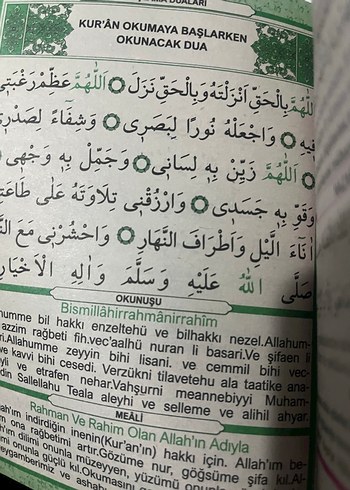 DUALARI
KUR'ÂN OKUMAYA BAŞLARKEN
OKUNACAK DUA
بِالْحَقِّ اَنْزَلْتَهُ وَبِالْحَقِّ نَزَلَ اَللّٰهُمَّ عَظِّمْ رَغْبَتِى
فِيهِ وَاجْعَلْهُ نُورًا لِبَصَرِى وَشِفَاءً لِصَدْرِى
اَللّٰهُمَّ زَيِّنْ بِهِ لِسَانِى وَجَمِّلْ بِهِ وَجْهِى
وَقَوِّ بِهِ جَسَدِى وَارْزُقْنِى تِلَاوَتَهُ عَلٰى
اٰنَاءَ الَّيْلِ وَاَطْرَافَ النَّهَارِ وَاحْشُرْنِى مَعَ
صَلَّى اللّٰهُ عَلَيْهِ وَسَلَّمَ وَاٰلِهِ الْاَخْيَارِ
OKUNUŞU
Bismillâhirrahmânirrahîm
bil hakkı enzeltehü ve bilhakkı nezel.Allahum-
azzim rağbeti fih.vec'aalhü nuran li basari.Ve şifaen li
Allahumme zeyyin bihi lisani. ve cemmil bihi vec-
ve kavvi bihi cesedi. Verzükni tilavetehu ala taatike ana-
ve etrafen nehar.Vahşurni meannebiyyi Muham-
Sallellahu Teala aleyhi ve selleme ve alihil ahyar.
MEÂLİ
Rahman Ve Rahim Olan Allah'ın Adıyla
indirdiğin inenin(Kur'an'ın) hakkı için. Allah'ım be-
ona rağbetimi artır.Gözüme nur, göğsüme şifa kıl.Al-
dilimi onunla müzeyyen, yüzümü
onunla güçlü kıl.Okumasını